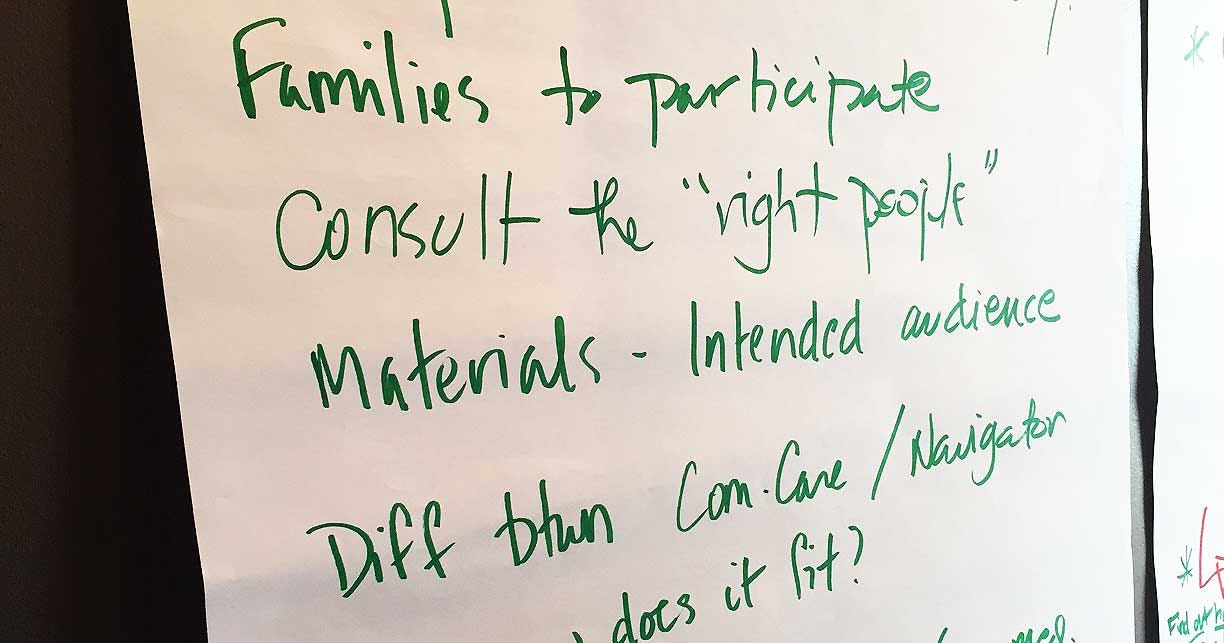 Families to participate
Consult the "right people"
Materials - Intended audience
Diff btwn Com. Care / Navigator
does it fit?
*
*
Find out